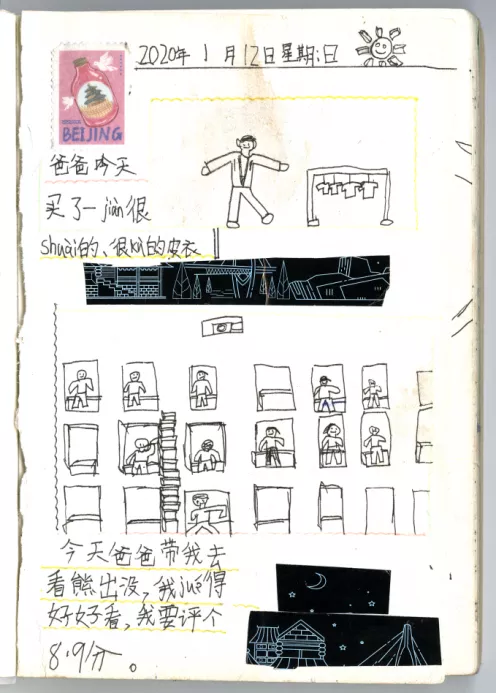 2020年1月12日星期日
BEIJING
爸爸今天
买了一jiàn很
shuài的、很kù的皮衣
今天爸爸带我去
看熊出没，我jué得
好好看，我要评个
8.9分。